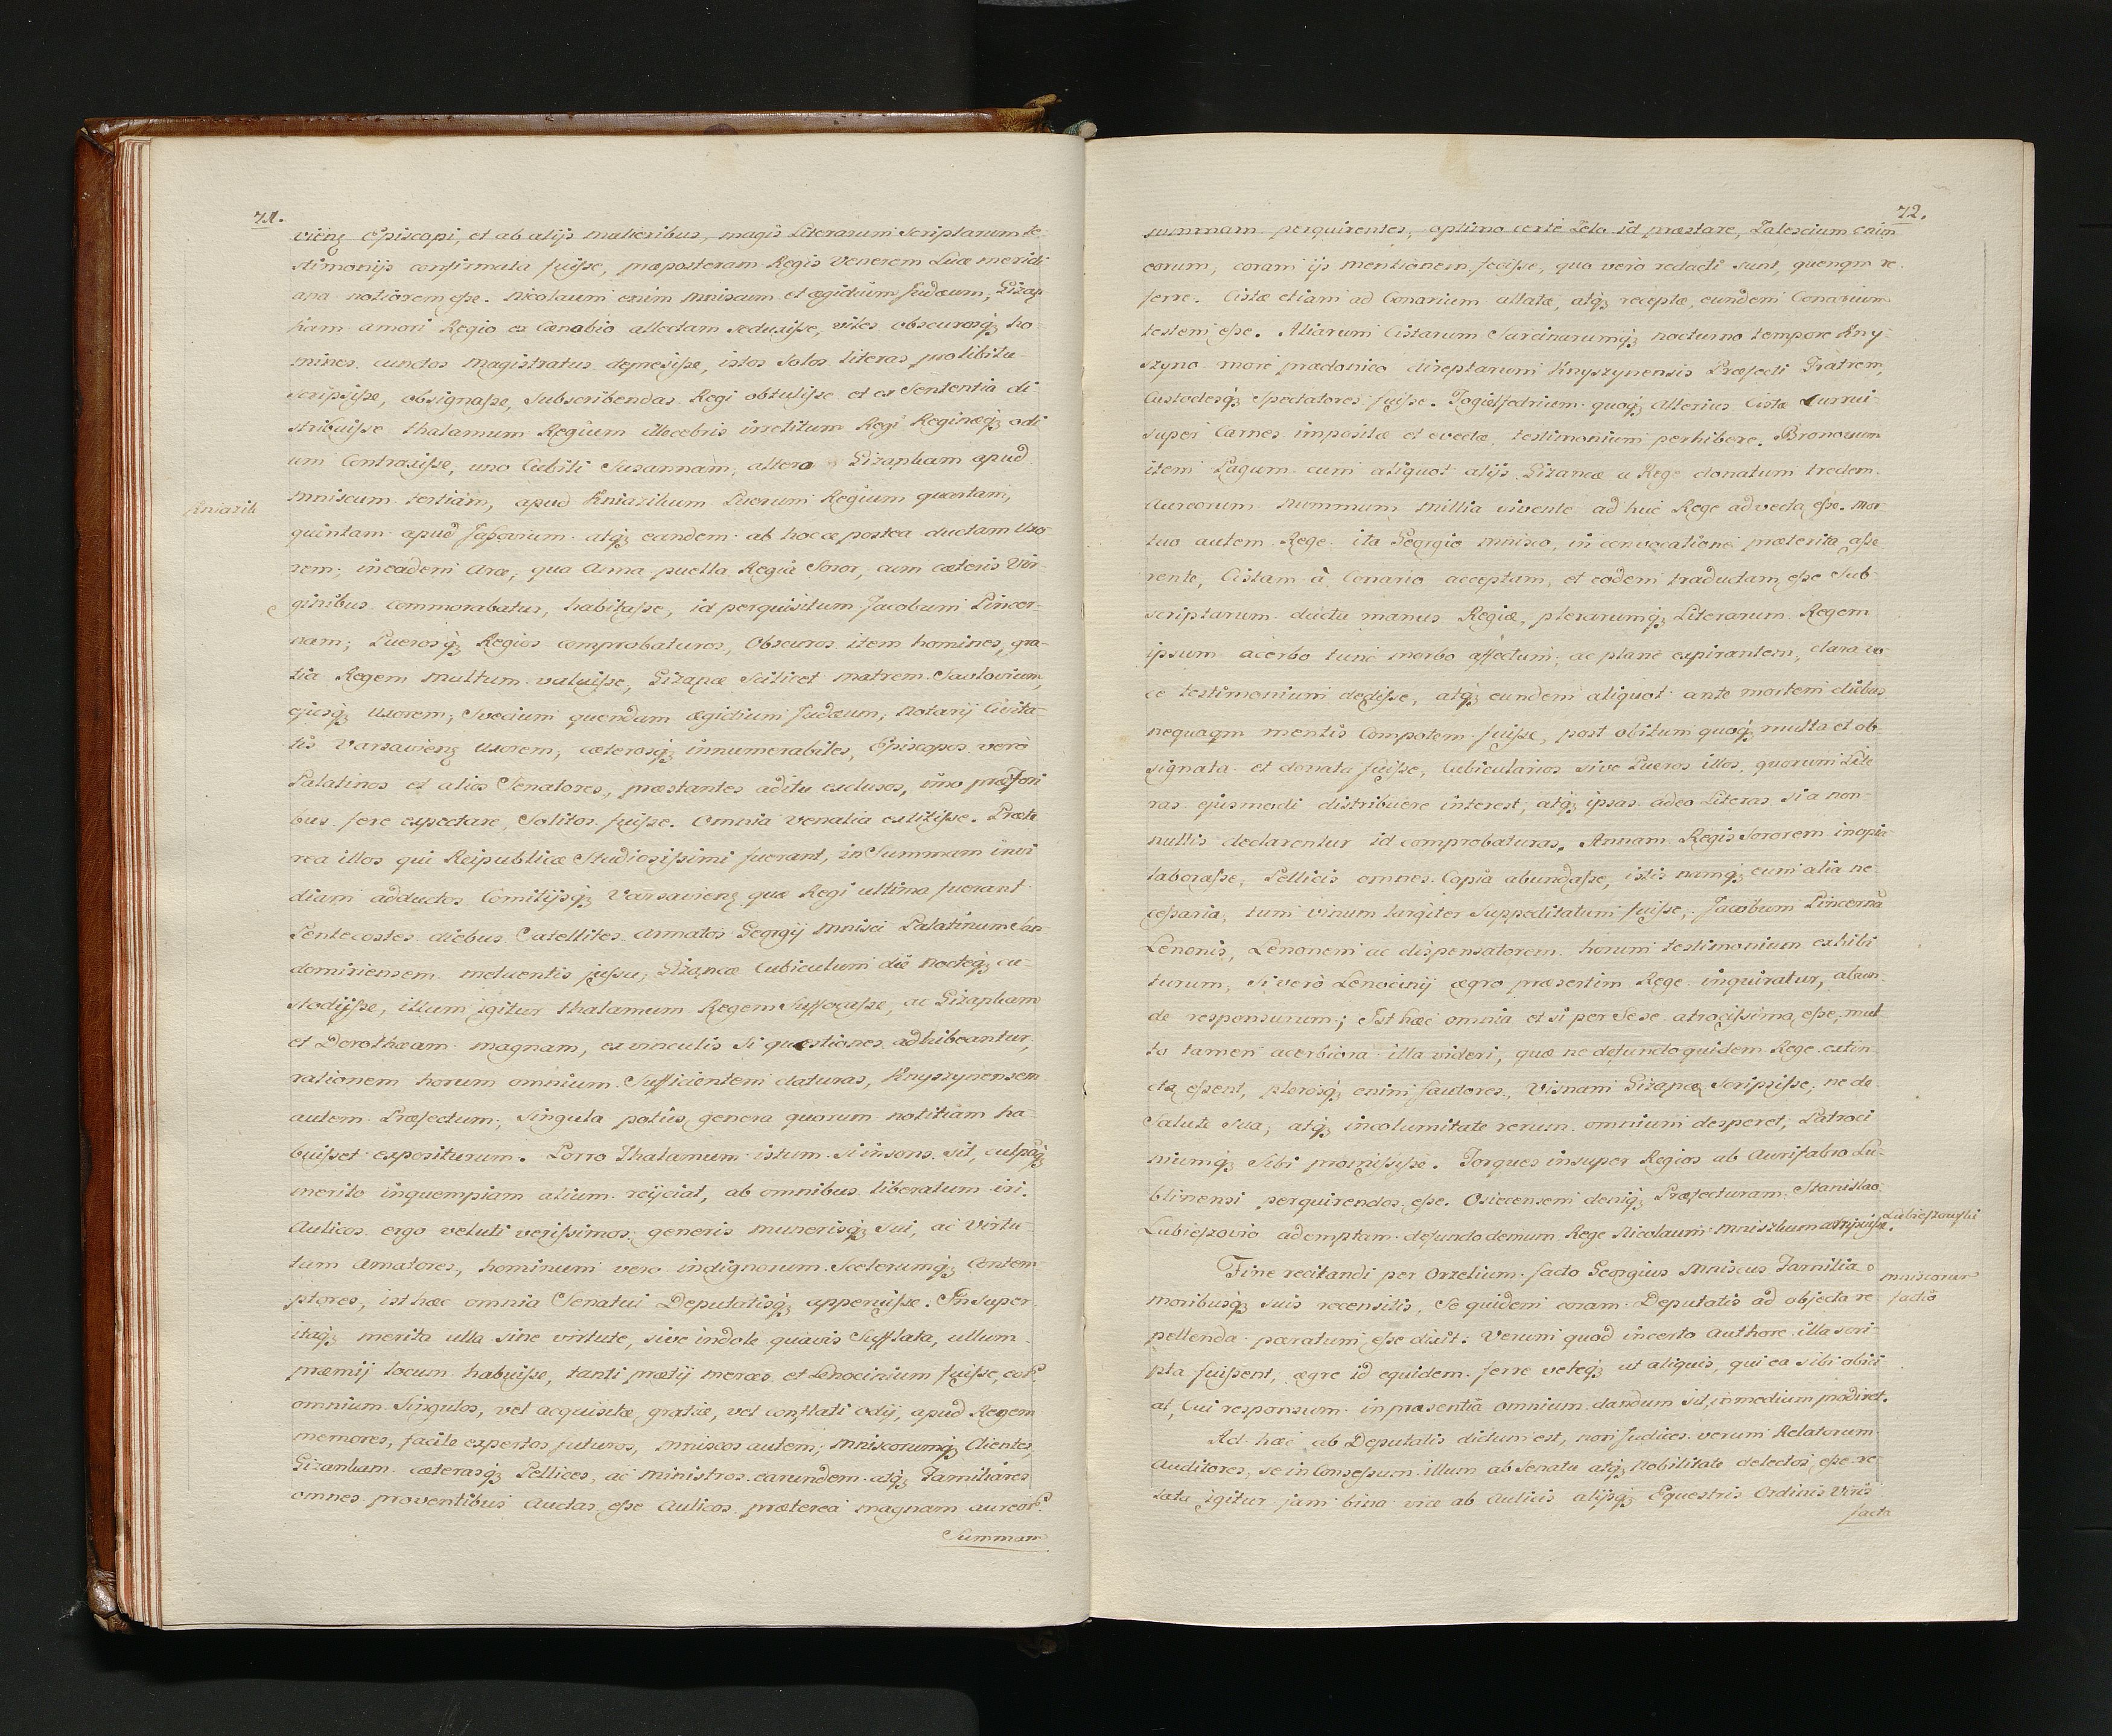 71.
vienʒ Episcopi, et ab alijs mulieribus, magis Literarum Scriptarum te-
stimonijs confirmata fuiſse, præposteram Regis Venerem Luce meridi
ana notiorem eſse. Nicolaum enim Mniscum et Ægidium Judæum, Gizan
kam amori Regio ex Cænobio allectam seduxiſse, viles obscurosqʒ ho-
mines cunctos Magistratus depresiſse, istos Solos literas pro libitu
scripsiſse, obsignaſse, Subscribendas Regi obtuliſse et ex Sententia di
stribuiſse thalamum Regium illecebris irretitum Regi Reginæqʒ odi
um Contraxiſse, uno Cubili Susannam, altero Gizankam apud
Mniscum tertiam, apud Kniazikum Puerum Regium quartam,
Kniazik
quintam apud Jaſsovium atqʒ eandem ab hocce postea ductam Uxo-
rem; in eadem Arce, qua Anna puella Regia Soror, cum cæteris Vir-
ginibus commorabatur, habitaſse, id perquisitum Jacobum Pincer-
nam; Puerosqʒ Regios comprobaturos, Obscuros item homines, gra-
tia Regem multum valuiſse, Gizancæ Scilicet matrem
ejusqʒ uxorem, Svecium quendam Ægidium Judæum, Notarij Civita-
tis Varsavienʒ uxorem, cæterosqʒ innumerabiles, Episcopos verò
Palatinos et alios Senatores, præstantes aditu exclusos, imo præ fori
bus fere expectare Solitos fuiſse. Omnia venalia extitiſse. Præte
rea illos qui Reipublicæ Studiosiſsimi fuerant, in Summam invi
diam adductos Comitijsqʒ Varsavienʒ quæ Regi ultima fuerant
Pentecostes diebus Satellites armatos Georgij Mnisci Palatinum San-
domiriensem metuentis juſsu, Gizancæ Cubiculum die nocteqʒ cu-
stodijſse, illum igitur thalamum Regem Suffocaſse, ac Gizankam
et Dorothæam magnam, ex vinculis si quæstiones adhibeantur,
rationem horum omnium Sufficientem daturas, Knyszynensem
autem Præfectum, Singula potius genera quorum notitiam ha-
buiſset expositurum. Porro Thalamum istum si insons sit, culpaqʒ
merito in quempiam alium reijciat, ab omnibus liberatum iri.
Aulicos ergo veluti veriſsimos generis munerisqʒ sui, ac Virtu-
tum Amatores, hominum vero indignorum Scelerumqʒ Contem-
ptores, ist hæc omnia Senatui Deputatisqʒ apperuiſse. Insuper
itaqʒ merita ulla sine virtute, sive indole quavis Sufflata, ullum
præmij locum habuiſse, tanti prætij meras et Lenocinium fuiſse,
omnium Singulos, vel acquisitæ gratiæ, vel conflati odij, apud Regem
memores, facile expertos futuros, Mniscos autem, Mniscorumqʒ Clientes,
Gizankam cæterasqʒ Pellices, ac ministros earundem atqʒ Familiares
omnes proventibus Auctas eſse Aulicos præterea magnam aureor̃
Summam
72.
summam perquirentes, optimo certè Zelo id præstare, Zalescium enim
eorum, coram ijs mentionem feciſse, quo verò redacti sunt, quenqm re-
ferre. Cistæ etiam ad Conarium allatæ, atqʒ receptæ, eundem Conarium
testem eſse. Aliarum Cistarum Sarcinarumqʒ nocturno tempore Kny-
szyno more prædonico direptarum Knyszynensis Præfecti Fratrem,
Custodesqʒ Spectatores fuiſse. quoqʒ Alterius Cistæ Currui
super Carnes impositæ et evectæ, testimonium perhibere. Bronovum
item Pagum cum aliquot alijs Gizancæ a Rege donatum tredem
Aureorum Nummum millia vivente ad huc Rege advecta eſse. Mor-
tuo autem Rege ita Georgio Mnisco, in convocatione præterita aſse
rente, Cistam à Conario acceptam, et eodem traductam eſse Sub-
scripturum ductu manus Regiæ, plerarumqʒ Literarum Regem
ipsum acerbo tunc morbo affectum, ac plane expirantem, clara vo-
ce testimonium dediſse, atqʒ eundem aliquot ante mortem diebus
nequaqm mentis Compotem fuiſse, post obitum quoqʒ multa et ob-
signata et donata fuiſse, Cubicularios sive Pueros illos, quorum Lite
ras ejusmodi distribuere interest, atqʒ ipsas adeo Literas si a non-
nullis declarentur id comprobaturas. Annam Regis Sororem inopia
laboraſse, Pellicis omnes Copia abundaſse, istis namqʒ cum alia ne-
ceſsaria, tum vinum largiter Suppeditatum fuiſse, Jacobum Pincernã
Lenonis, Lenonem ac dispensatorem horum testimonium exhibi
turum, Si verò Lenocinij ægro præsertim Rege inquiratur, abun-
de responsurum; Ist hæc omnia et si per Se se atrociſsima eſse, mul
to tamen acerbiora illa videri, quæ ne defuncto quidem Rege extin-
cta eſsent, plerosqʒ enim fautores, Visnam Gizancæ Scripsiſse, ne de
Salute Sua, atqʒ incolumitate rerum omnium desperet, Patroci
niumqʒ Sibi promisiſse. Torques insuper Regios ab Aurifabro Lu-
blinensi perquirendos eſse. Osiecensem deniqʒ Præfecturam Stanislao
Lubieſzovio ademptam defuncto demum Rege Nicolaum Mniszkum arripuiſse.
Lubieſzowſki
Fine recitandi per Orzelium facto Georgius Mniscus Familia
Mniscorum
factio
moribusqʒ suis recensitis, Se quidem coram Deputatis ad objecta re-
pellenda paratum eſse dixit. Verum quod incerto Authore illa scri-
pta fuiſsent, ægre id equidem ferre veleqʒ ut aliquis, qui ea sibi obici
at, Cui responsum in præsentia omnium dandum sit, in medium prodiret.
Ad hæc ab Deputatis dictum est, non Judices verum Relatorum
Auditores, se in Conseſsum illum ab Senatu atqʒ Nobilitate delectos eſse re-
lata igitur jam bina vice ab Aulicis alijsqʒ Equestris Ordinis Viris
facta